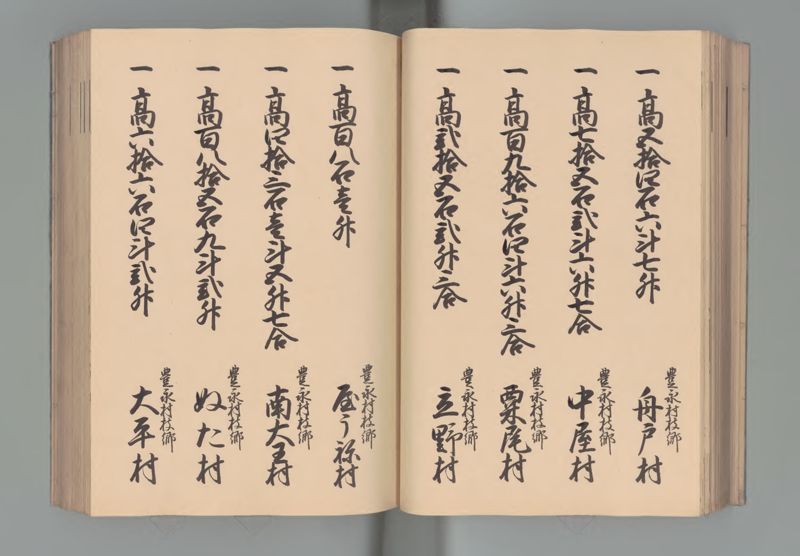 一 高五拾四石六斗七升
豊永村枝郷
舟戸村
一 高七拾五石弐斗六升七合
豊永村枝郷
中屋村
一 高百九拾六石四斗六升三合
豊永村枝郷
粟尾村
一 高弐拾五石弐升三合
豊永村枝郷
立野村
一 高百八石壱升
豊永村枝郷
屋うね村
一 高四拾三石壱斗五升七合
豊永村枝郷
南大王村
一 高百八拾五石九斗弐升
豊永村枝郷
ぬた村
一 高六拾六石四斗弐升
豊永村枝郷
大平村